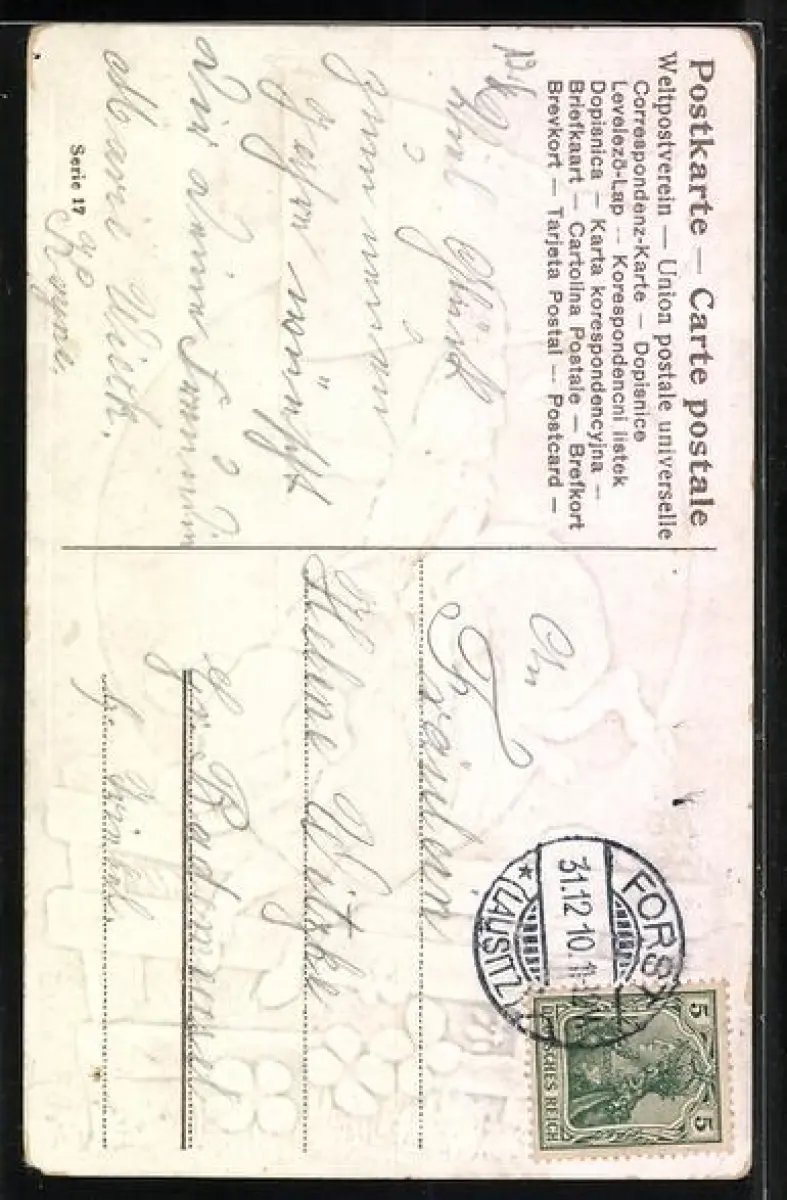 Postkarte — Carte postale
Weltpostverein — Union postale universelle
Correspondenz-Karte — Dopisnice
Levelező-Lap — Korespondencni listek
Dopisnica — Karta korespondencyjna —
Briefkaart — Cartolina Postale — Brefkort
Brevkort — Tarjeta Postal — Postcard —
Viel Glück
zum neuen
Jahre wünscht
Dir Deine Freundin
Marie Wieth.
Serie 17
An
Fräulein
Helene Witzke
FORST
31.12.10.11-12
* (LAUSITZ)
5 5
DEUTSCHES REICH